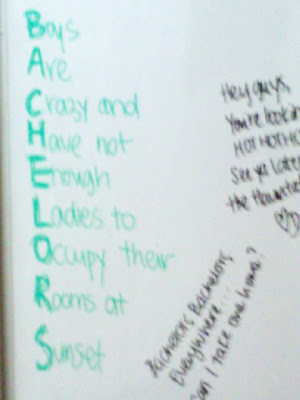 Boys
Are
Crazy and
Have not
Enough
Ladies to
Occupy their
Rooms at
Sunset
Hey guys,
You're
HOT HOT
See ya later
the
Bachelors Bachelors
Everywhere...
can I take one home?